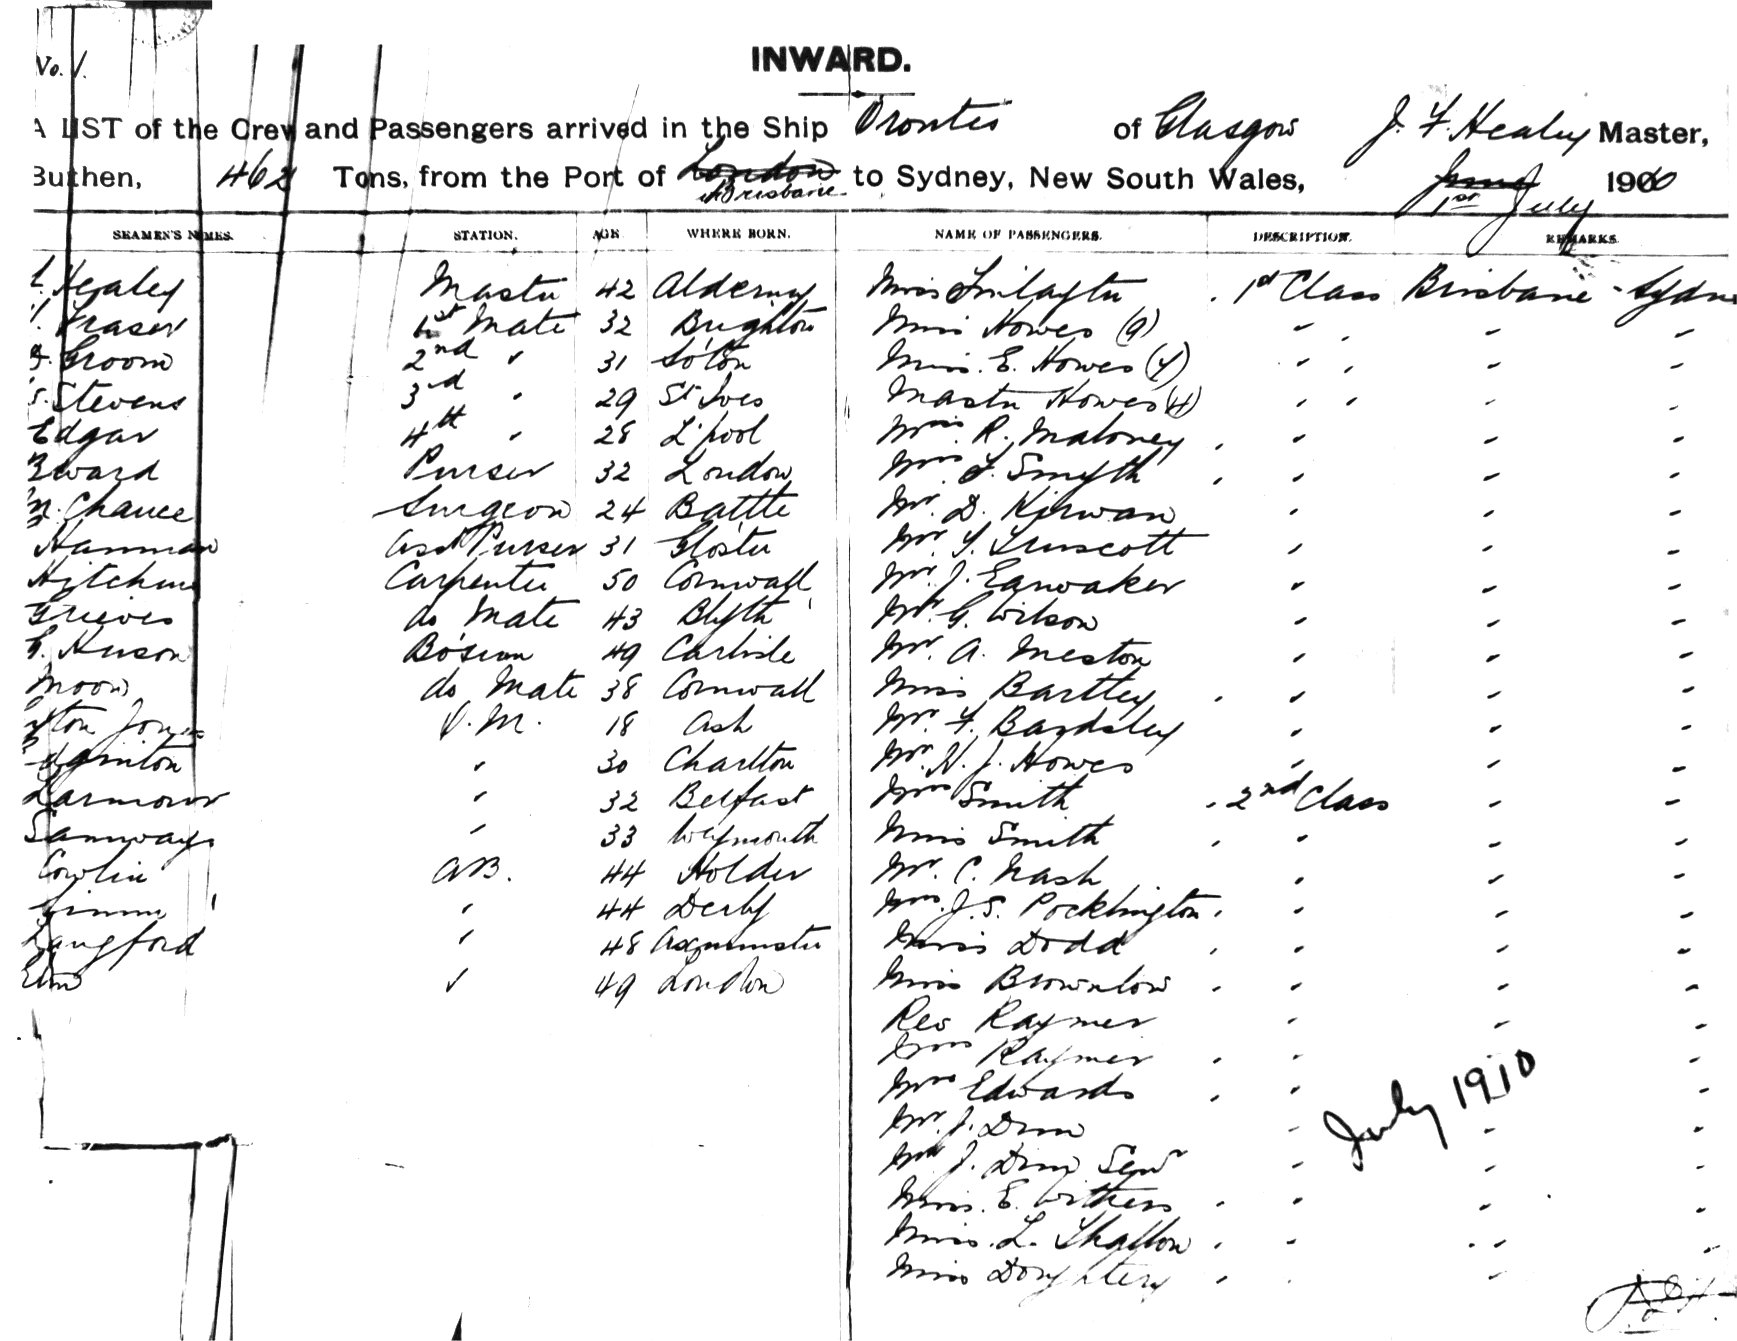 No. 1.
INWARD.
A LIST of the Crew and Passengers arrived in the Ship Orontes of Glasgow J. F. Healey Master,
Burthen, 462 Tons, from the Port of London Brisbane to Sydney, New South Wales, 1st July 1900
SEAMEN'S NAMES. STATION. AGE WHERE BORN. NAME OF PASSENGERS. DESCRIPTION. REMARKS.
Healey Master 42 Alderney Miss 1st Class Brisbane - Sydne
Fraser 1st Mate 32 Brighton Miss Howes (9) " " "
Groom 2nd " 31 So'ton Miss. E. Howes " " "
Stevens 3rd " 29 St Ives Master Howes (4) " " "
Edgar 4th " 28 L'pool R. Maloney " " "
Purser 32 London Mrs Smyth " " "
Chance Surgeon 24 Battle Mr. D. Kirwan " " "
Hamman Asst Purser 31 Glo'ster Mr Truscott " " "
Carpenter 50 Cornwall Mr. J. Earwaker " " "
Grieves do Mate 43 Blyth Mr. G. Wilson " " "
Bo'sun 49 Carlisle Mr. A. Meston " " "
Moon do Mate 38 Cornwall Miss Bartley " " "
Jones 18 Ash Mr. F. Bardsley " " "
" 30 Charlton Mr. H. J. Howes " " "
Larmour " 32 Belfast Mrs Smith 2nd Class " "
Samways " 33 Weymouth Miss Smith " " "
Cowlin AB. 44 Holder Mr. C. Nash " " "
" 44 Derby J. S. Pocklington " " "
Langford " 48 Axminster Miss Dodd " " "
" 49 London Miss Brownlow " " "
Rev Raymer " " "
Mrs Raymer " " "
Mrs Edwards " " "
Mr. J. " " "
J. Senr " " "
Miss. E. Withers " " "
Miss. L. " " "
Miss " "
July 1910